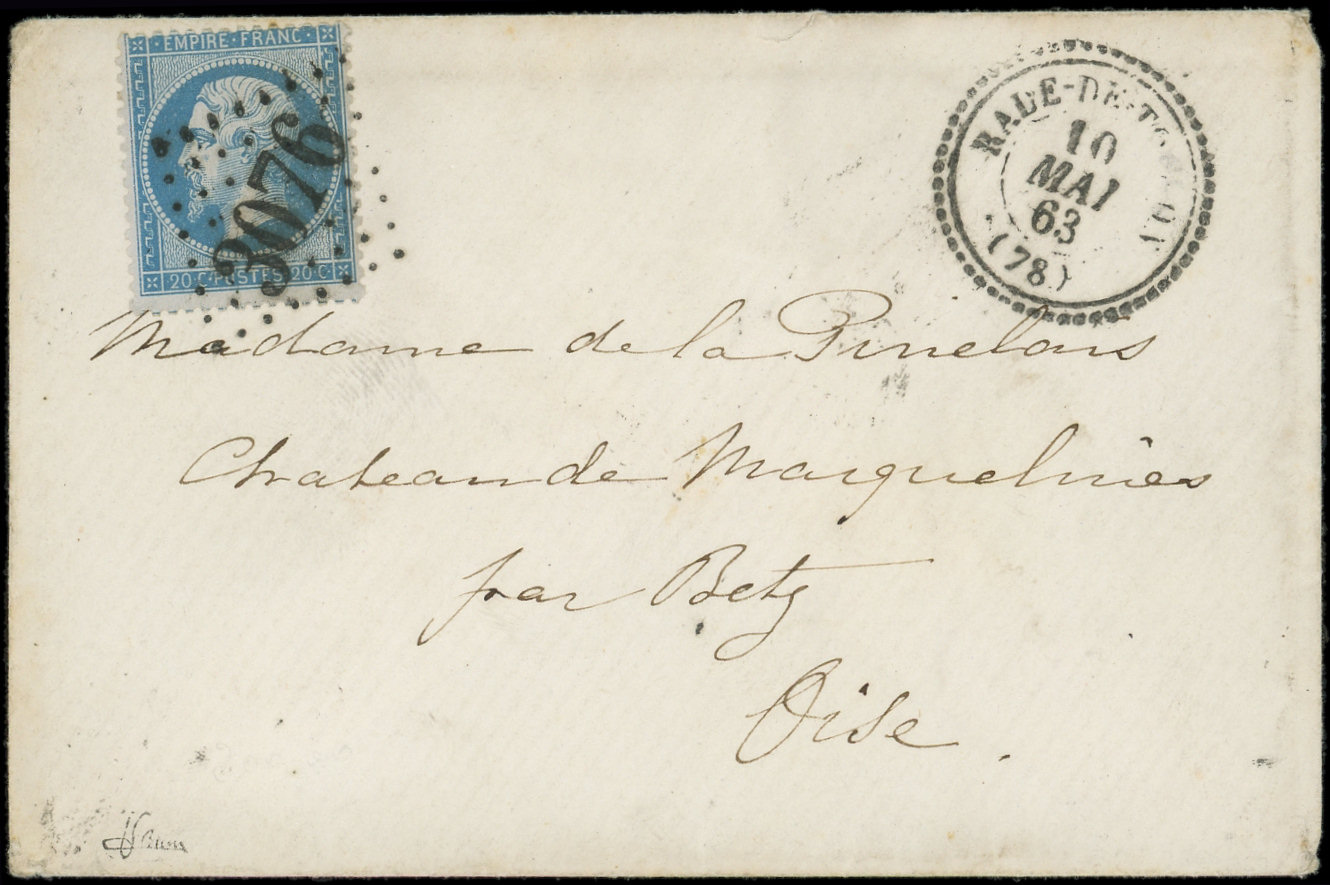 EMPIRE·FRANC·
3076
20·C·POSTES·20·C·
RADE-DE-TOULON
10
MAI
63
(78)
Madame de la Pinelais
Chateau de
par Betz
Oise.